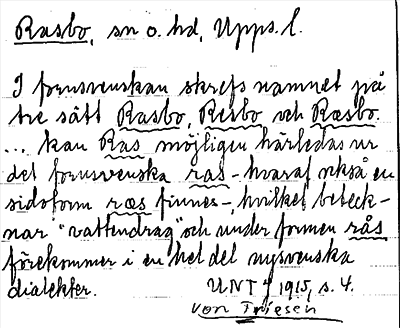 Rasbo, sn o. hd, Upps. l.
I fornsvenskan skrefs namnet på
tre sätt Rasbo, Resbo och Ræsbo.
... kan Ras möjligen härledas ur
det fornsvenska ras - hvaraf också en
sidoform ræs finnes -, hvilket beteck-
nar "vattendrag" och under formen rås
förekommer i en hel del nysvenska
dialekter. UNT 1915, s. 4.
von Friesen